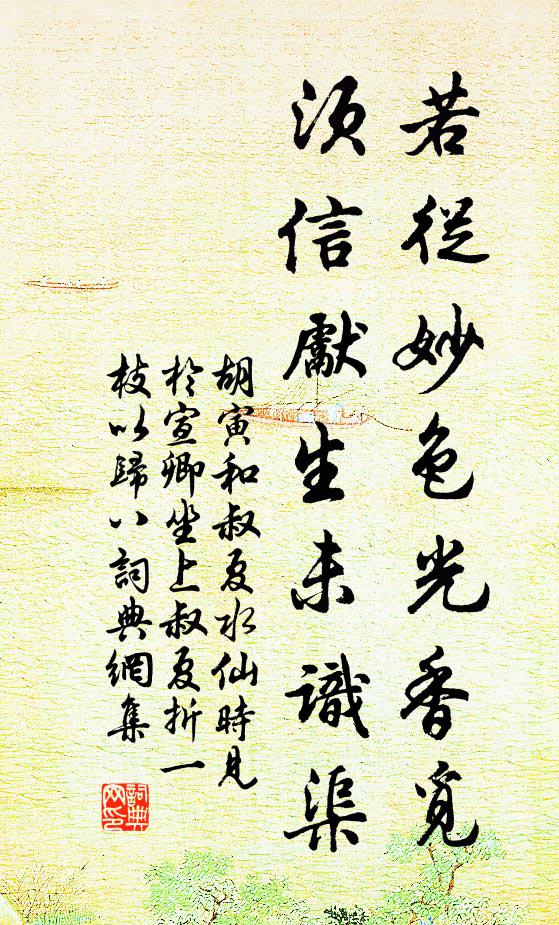 若從妙色光香覓
須信獻生未識渠
胡寅和叔夏水仙時見
於宣卿坐上叔夏折一
枝以歸八詞典網集
詞典
网印